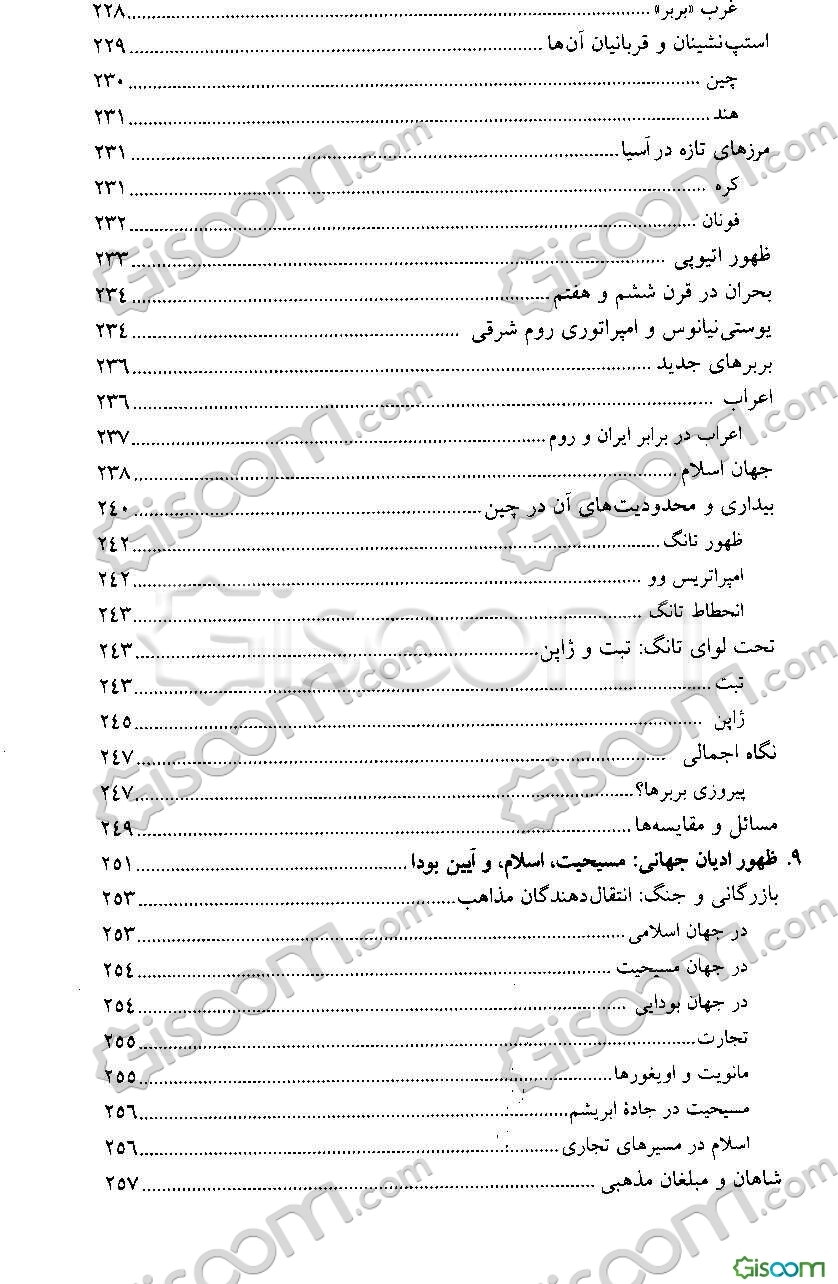 غرب «بربر» ........ ۲۲۸
استپ‌نشینان و قربانیان آن‌ها ........ ۲۲۹
چین ........ ۲۳۰
هند ........ ۲۳۱
مرزهای تازه در آسیا ........ ۲۳۱
کره ........ ۲۳۱
فونان ........ ۲۳۲
ظهور اتیوپی ........ ۲۳۳
بحران در قرن ششم و هفتم ........ ۲۳٤
یوستی‌نیانوس و امپراتوری روم شرقی ........ ۲۳٤
بربرهای جدید ........ ۲۳٦
اعراب ........ ۲۳٦
اعراب در برابر ایران و روم ........ ۲۳۷
جهان اسلام ........ ۲۳۸
بیداری و محدودیت‌های آن در چین ........ ۲٤۰
ظهور تانگ ........ ۲٤۲
امپراتریس وو ........ ۲٤۲
انحطاط تانگ ........ ۲٤۳
تحت لوای تانگ: تبت و ژاپن ........ ۲٤۳
تبت ........ ۲٤۳
ژاپن ........ ۲٤٥
نگاه اجمالی ........ ۲٤۷
پیروزی بربرها؟ ........ ۲٤۷
مسائل و مقایسه‌ها ........ ۲٤۹
۹. ظهور ادیان جهانی: مسیحیت، اسلام، و آیین بودا ........ ۲٥۱
بازرگانی و جنگ: انتقال‌دهندگان مذاهب ........ ۲٥۳
در جهان اسلامی ........ ۲٥۳
در جهان مسیحیت ........ ۲٥٤
در جهان بودایی ........ ۲٥٤
تجارت ........ ۲٥٥
مانویت و اویغورها ........ ۲٥٥
مسیحیت در جادهٔ ابریشم ........ ۲٥٦
اسلام در مسیرهای تجاری ........ ۲٥٦
شاهان و مبلغان مذهبی ........ ۲٥۷
Gisoom